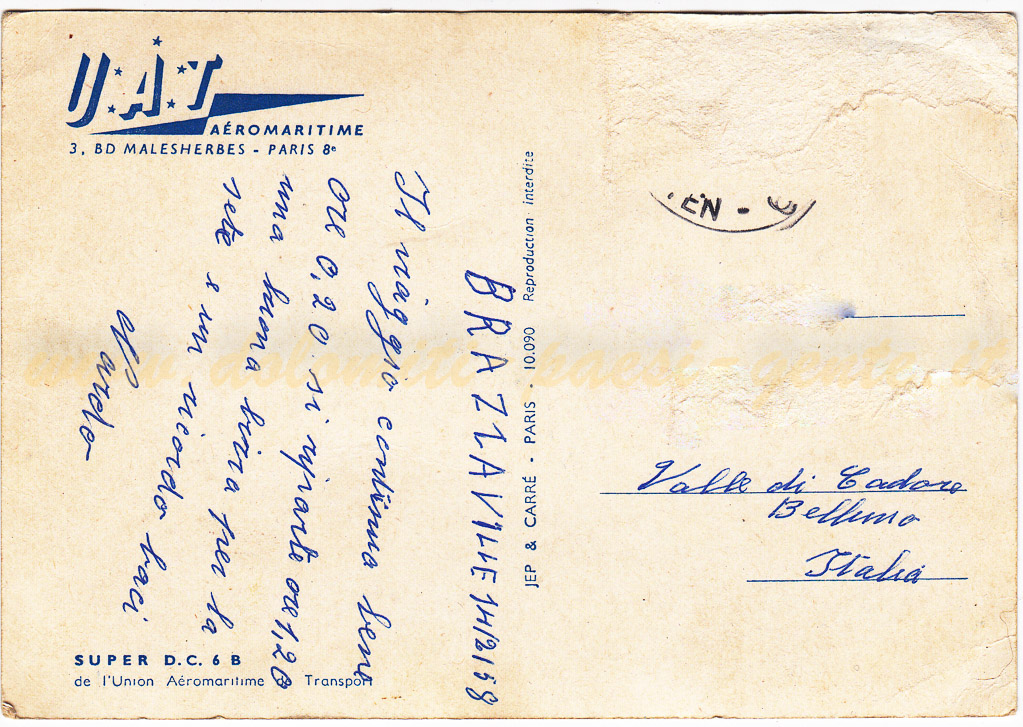 U.A.T
AÉROMARITIME
3, BD MALESHERBES - PARIS 8e
BRAZZAVILLE 14/2/58
Il viaggio continua bene
ore 0,20 si riparte ore 1,20
una buona birra per la
sete e un ricordo baci
Nardo
SUPER D.C. 6 B
de l'Union Aéromaritime de Transport
JEP & CARRÉ - PARIS - 10.090 Reproduction interdite
EN - 9
Valle di Cadore
Belluno
Italia
www.dolomiti-paesi-gente.it